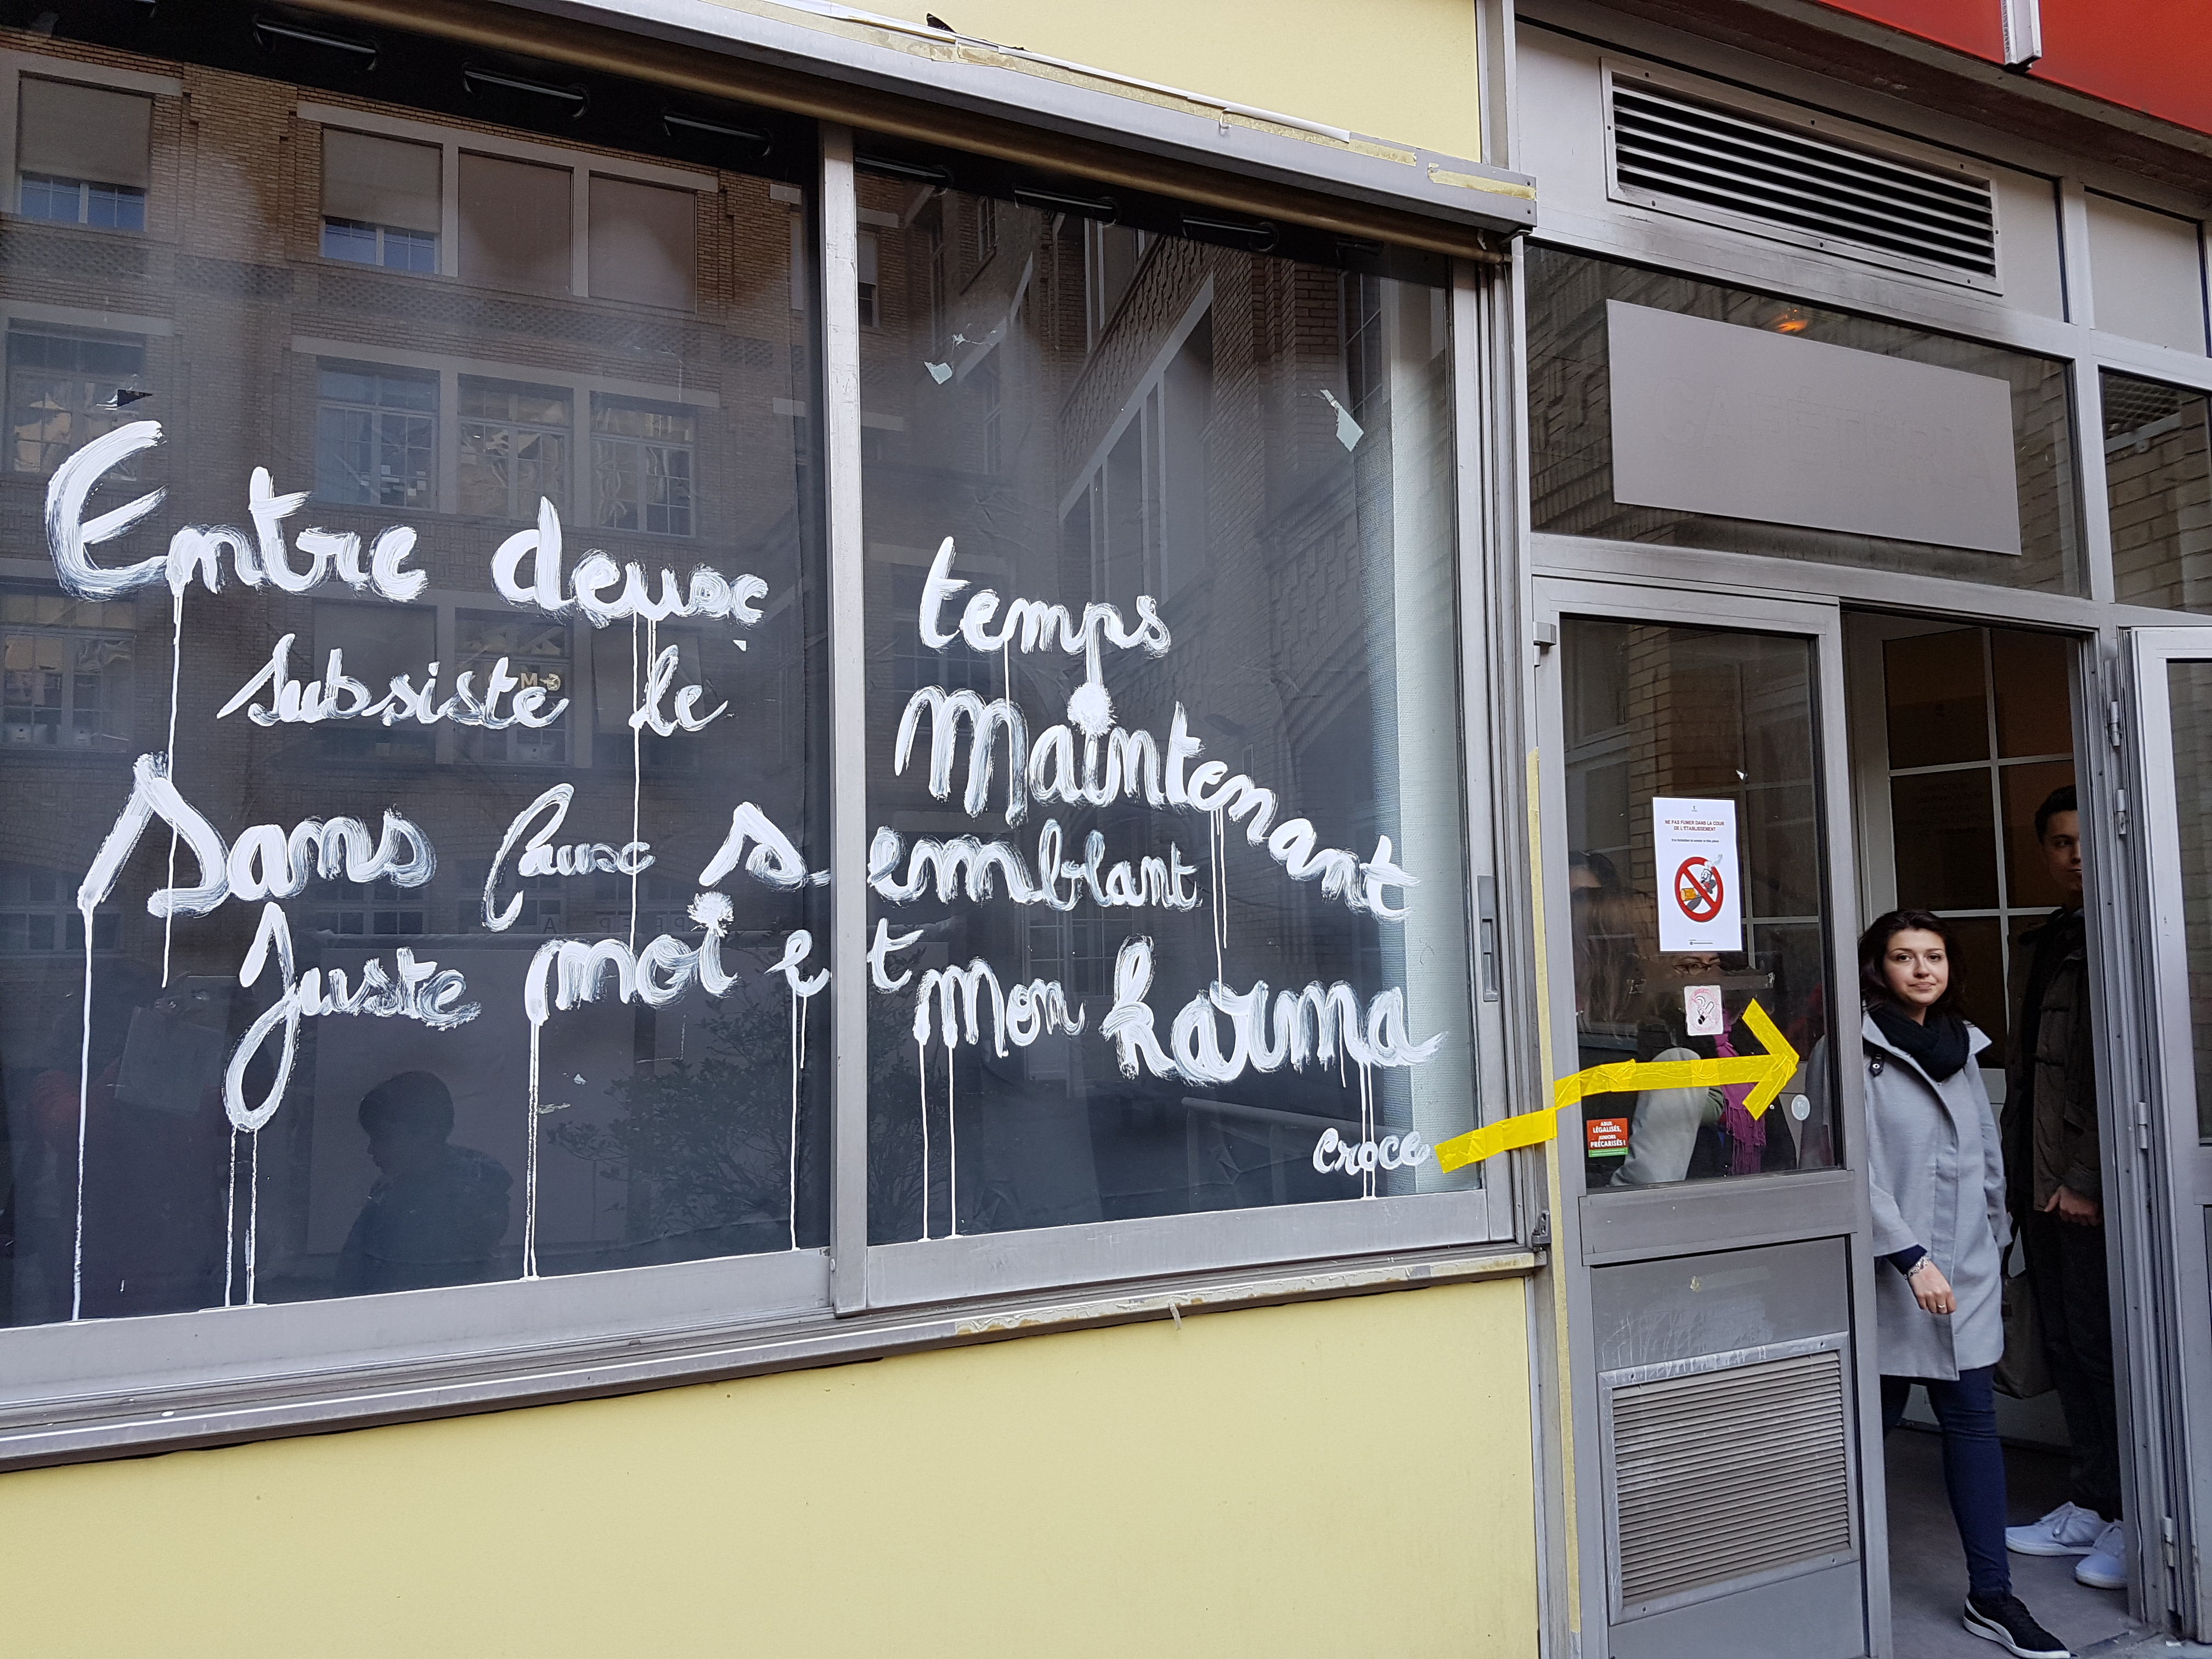 Entre deux temps
subsiste le Maintenant
Sans faux semblant
Juste moi et mon karma
croce
CAFÉTÉRIA
NE PAS FUMER DANS LA COUR
DE L'ÉTABLISSEMENT
ABUS
LÉGALISÉS,
JUNIORS
PRÉCARISÉS !